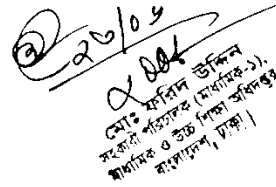 ২০/০৮
মোঃ ফরিদ উদ্দিন
সহকারী পরিচালক (মাধ্যমিক-১),
মাধ্যমিক ও উচ্চ শিক্ষা অধিদপ্তর
বাংলাদেশ, ঢাকা।